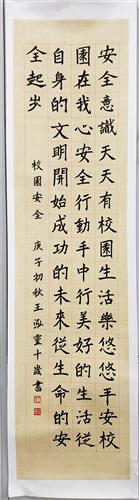 安全意識天天有校園生活樂悠悠平安校
園在我心安全行動手中行美好的生活從
自身的文明開始成功的未來從生命的安
全起步
校園安全 庚子初秋王泓靈十歲書